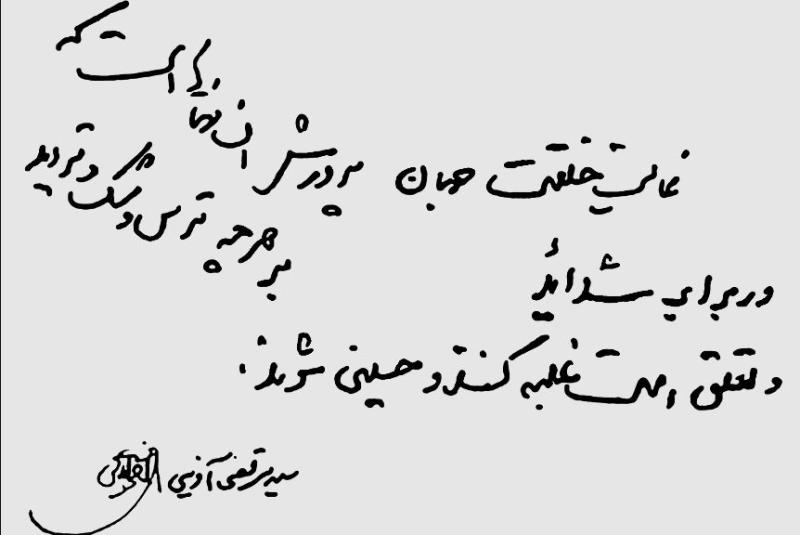 غایت خلقت جهان پرورش انسانهایی است که
در برابر شدائد بر هر چه ترس و شک و تردید
و تعلق است غلبه کنند و حسینی شوند.
سید مرتضی آوینی